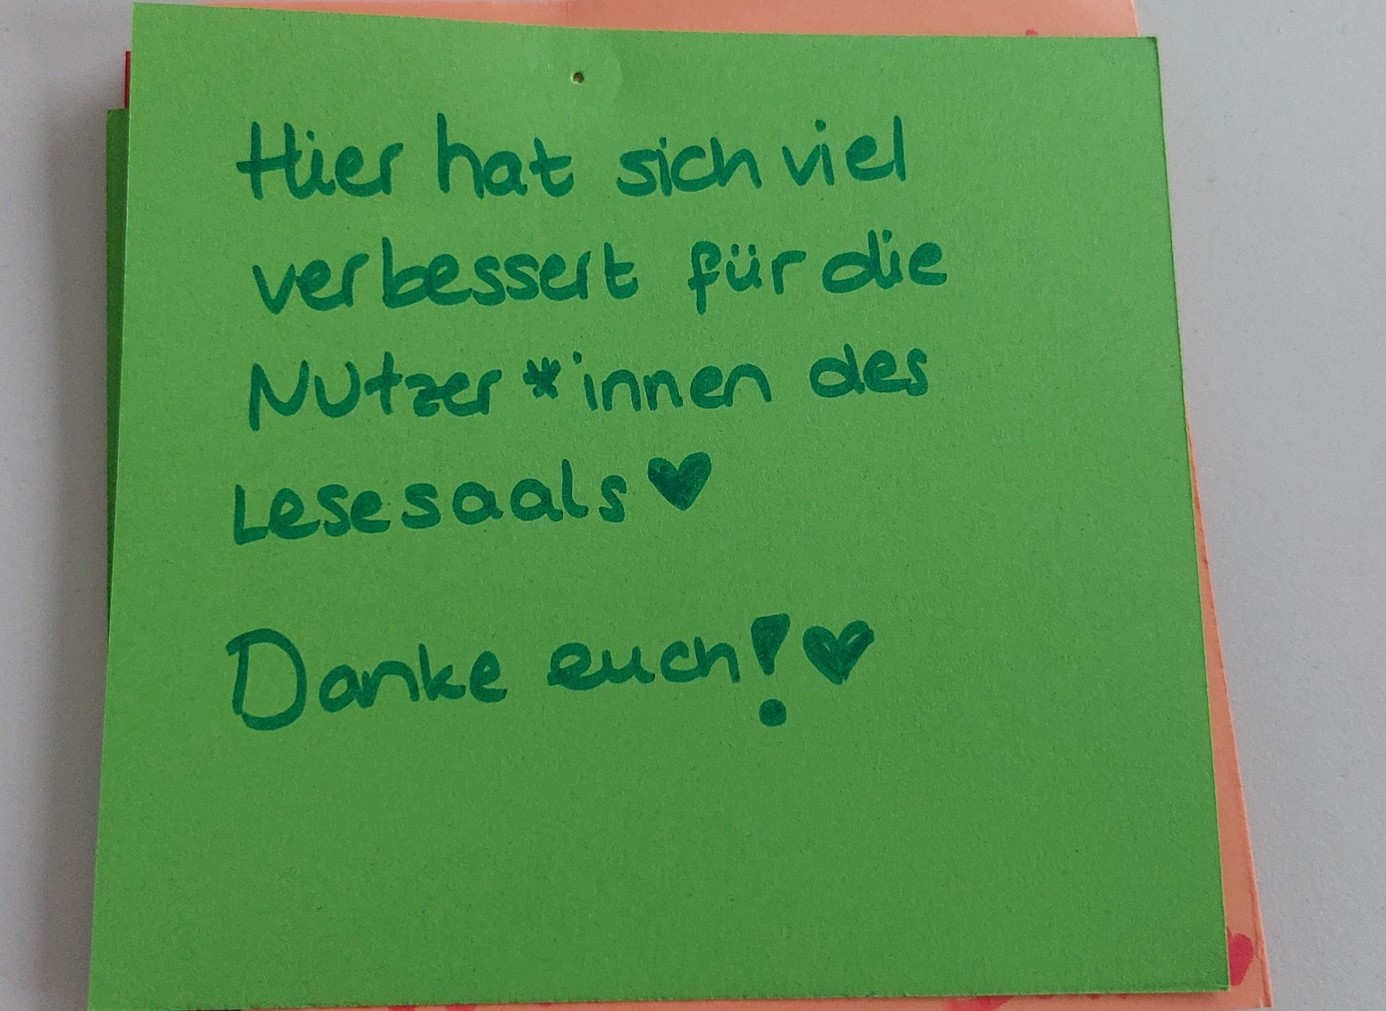 Hier hat sich viel
verbessert für die
Nutzer*innen des
Lesesaals ♥
Danke euch! ♥